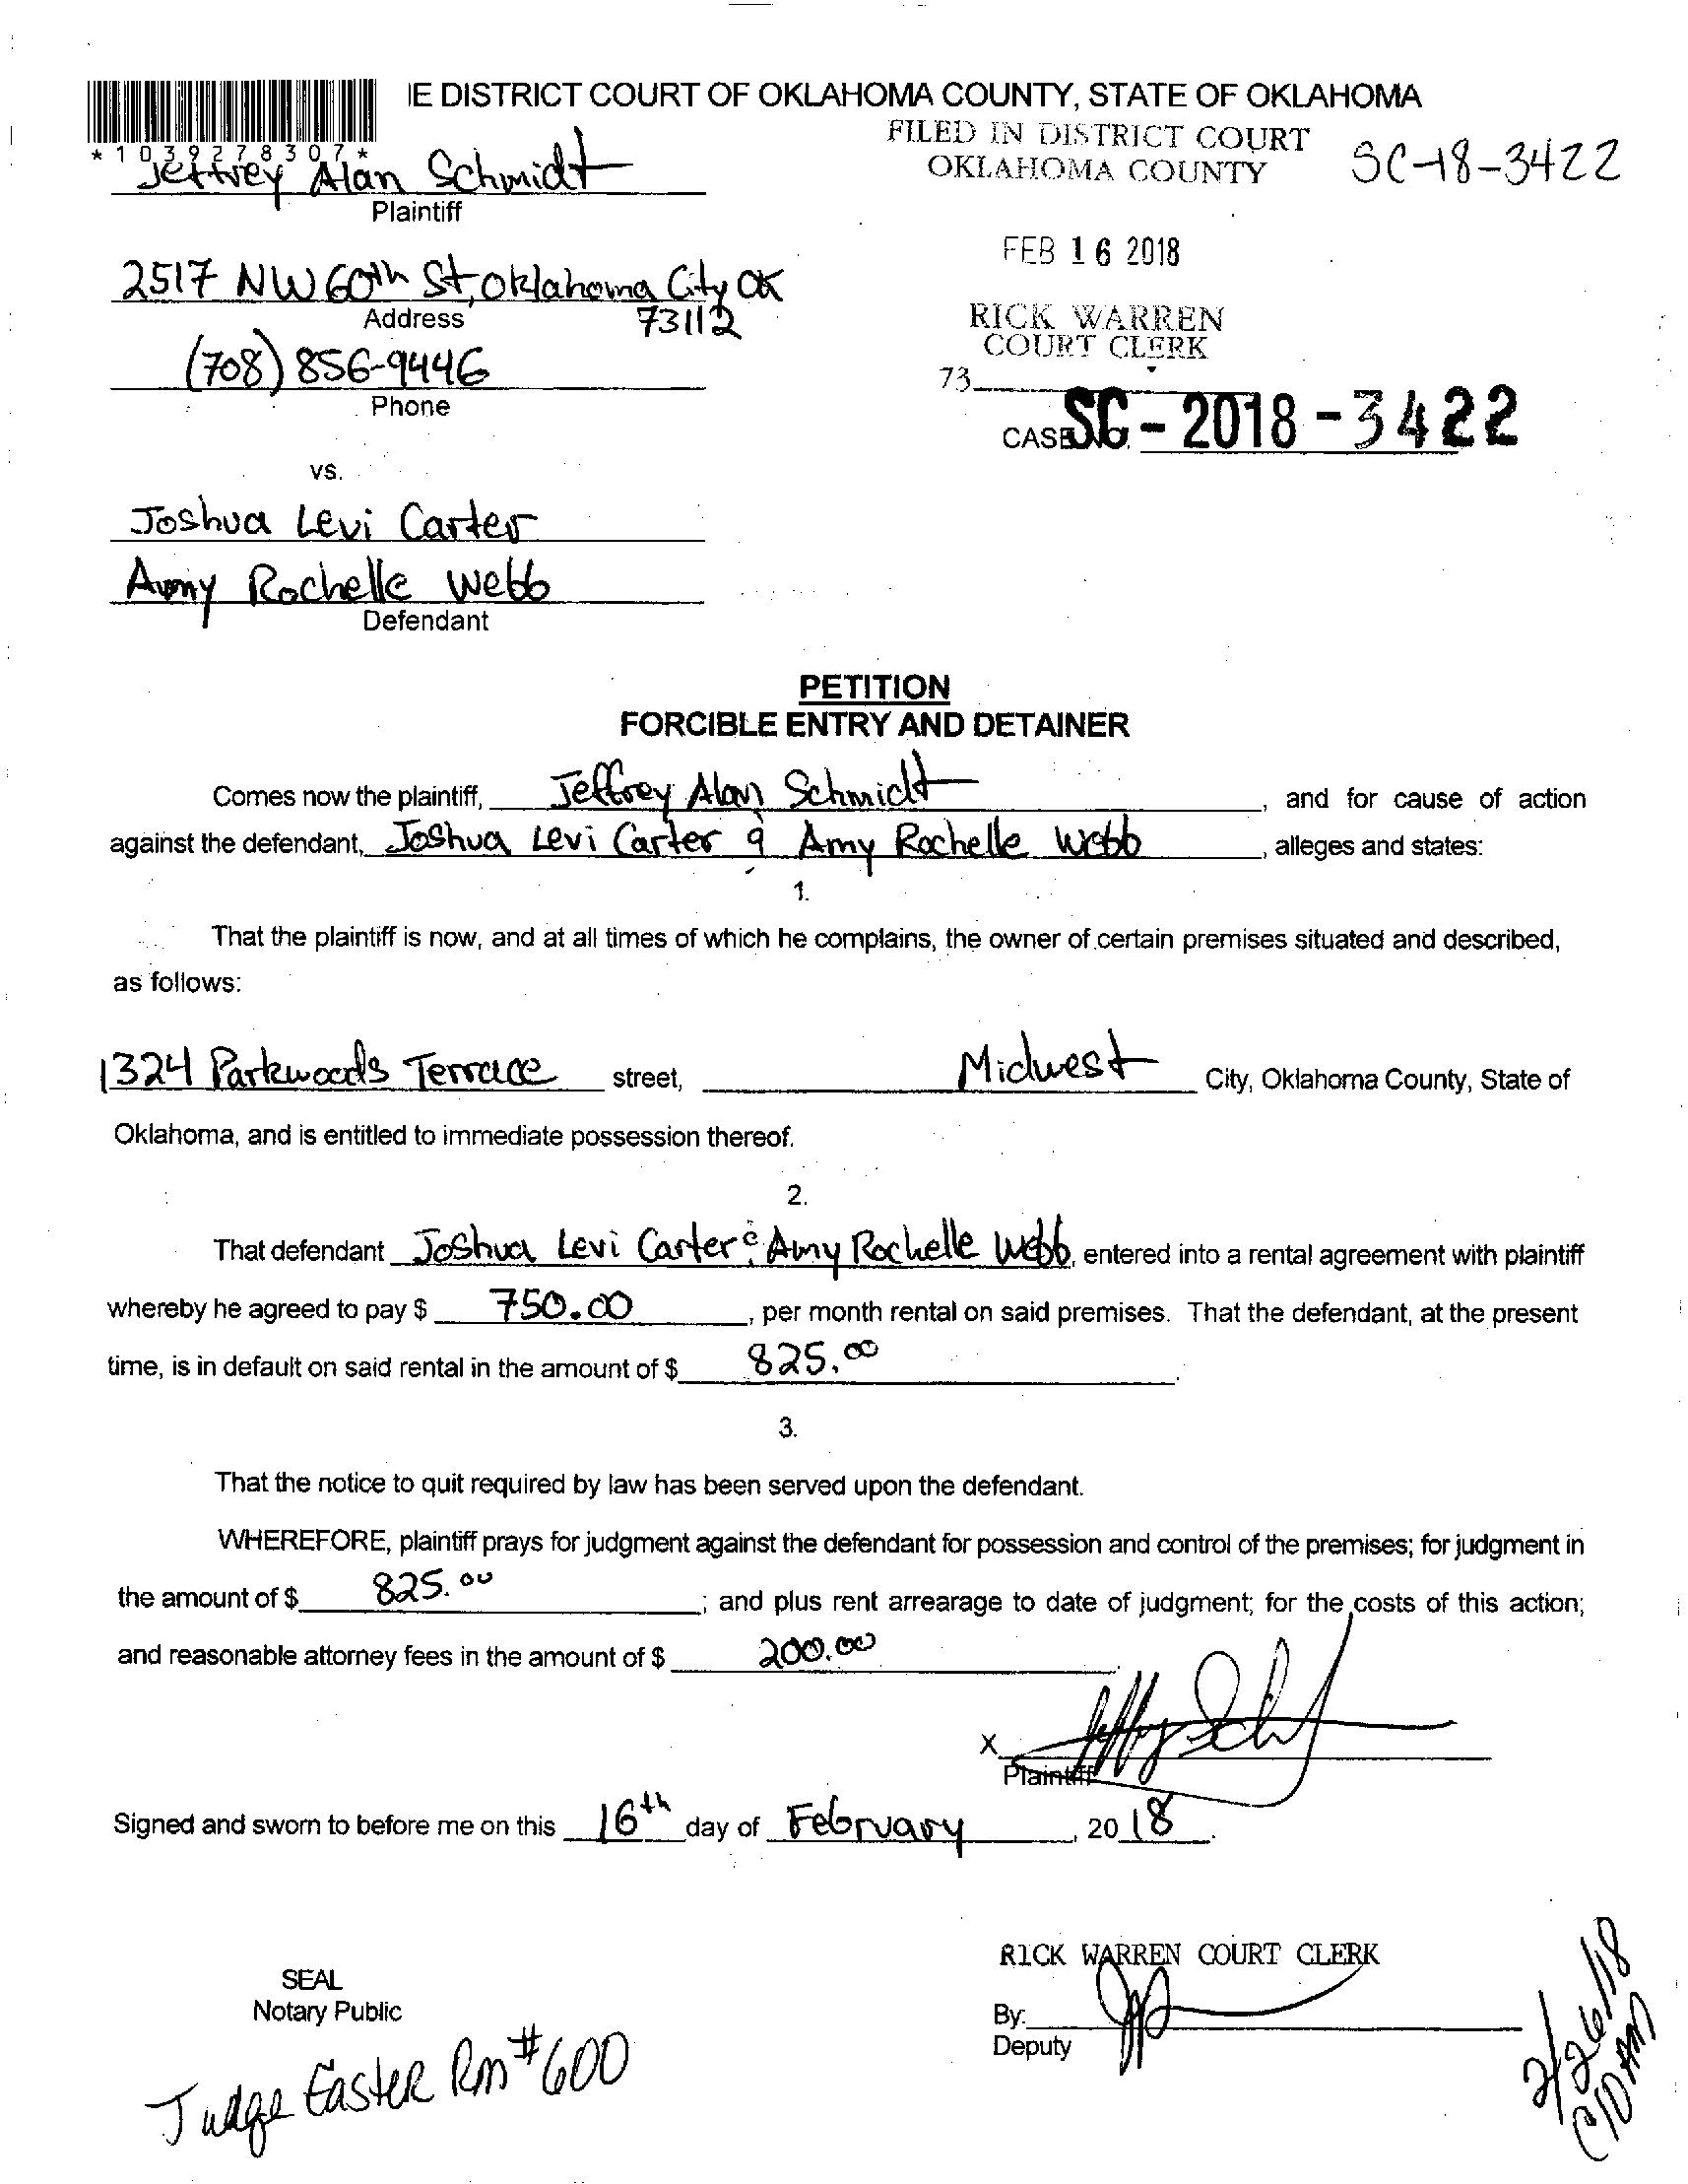 IE DISTRICT COURT OF OKLAHOMA COUNTY, STATE OF OKLAHOMA
*1039278307*
FILED IN DISTRICT COURT
OKLAHOMA COUNTY
SC-18-3422
Jeffrey Alan Schmidt
Plaintiff
FEB 16 2018
2517 NW 60th St, Oklahoma City OK
73112
Address
RICK WARREN
COURT CLERK
(708) 856-9446
Phone
73
CASE NO. SC-2018-3422
vs.
Joshua Levi Carter
Amy Rochelle Webb
Defendant
PETITION
FORCIBLE ENTRY AND DETAINER
Comes now the plaintiff, Jeffrey Alan Schmidt, and for cause of action
against the defendant, Joshua Levi Carter & Amy Rochelle Webb, alleges and states:
1.
That the plaintiff is now, and at all times of which he complains, the owner of certain premises situated and described,
as follows:
1324 Parkwoods Terrace street, Midwest City, Oklahoma County, State of
Oklahoma, and is entitled to immediate possession thereof.
2.
That defendant Joshua Levi Carter & Amy Rochelle Webb, entered into a rental agreement with plaintiff
whereby he agreed to pay $ 750.00, per month rental on said premises. That the defendant, at the present
time, is in default on said rental in the amount of $ 825.00.
3.
That the notice to quit required by law has been served upon the defendant.
WHEREFORE, plaintiff prays for judgment against the defendant for possession and control of the premises; for judgment in
the amount of $ 825.00; and plus rent arrearage to date of judgment; for the costs of this action;
and reasonable attorney fees in the amount of $ 200.00.
X
Plaintiff
Signed and sworn to before me on this 16th day of February, 2018.
RICK WARREN COURT CLERK
SEAL
Notary Public
By:
Deputy
Judge Easter Rm #600
2/26/18